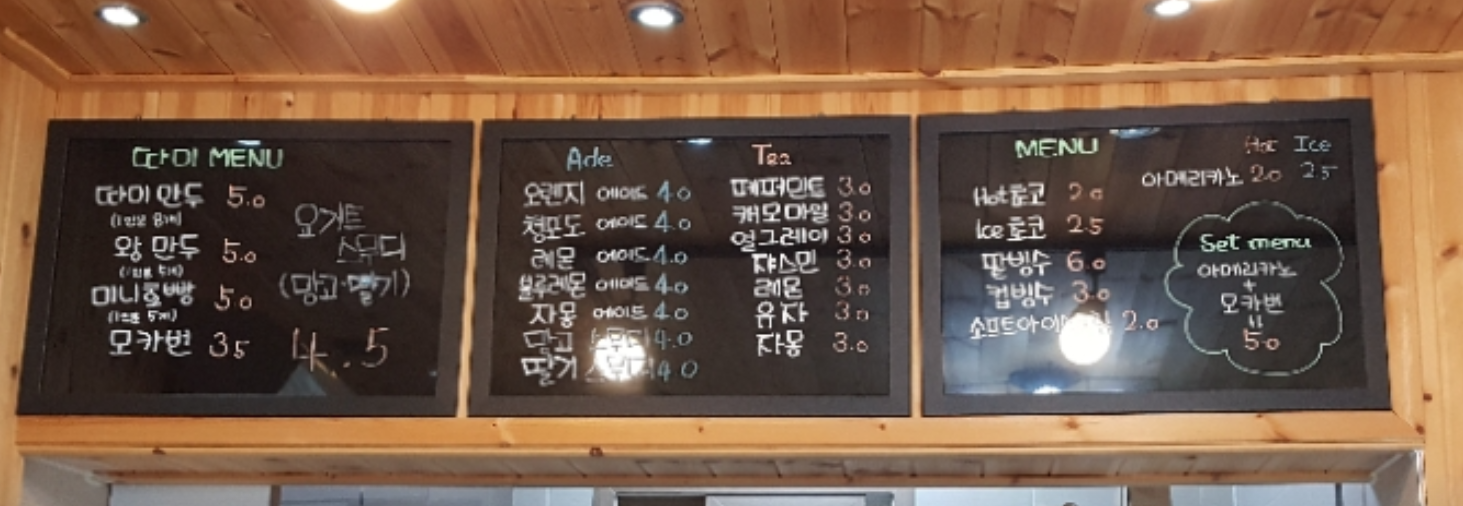 따미 MENU
따미 만두 5.0
(1인분 8개)
왕 만두 5.0
(1인분 5개)
미니호빵 5.0
(1인분 5개)
모카번 3.5
요거트
스무디
(망고·딸기)
4.5
Ade
오렌지 에이드 4.0
청포도 에이드 4.0
레몬 에이드 4.0
블루레몬 에이드 4.0
자몽 에이드 4.0
망고 스무디 4.0
딸기 스무디 4.0
Tea
페퍼민트 3.0
캐모마일 3.0
얼그레이 3.0
쟈스민 3.0
레몬 3.0
유자 3.0
자몽 3.0
MENU
Hot Ice
아메리카노 2.0 2.5
Hot초코 2.0
Ice초코 2.5
팥빙수 6.0
컵빙수 3.0
소프트아이스크림 2.0
Set menu
아메리카노
+
모카번
=
5.0